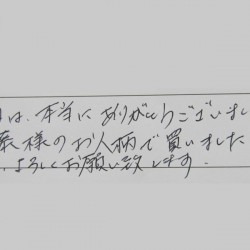 は、本当にありがとうございまし
様のお人柄で買いました
よろしくお願い致します.